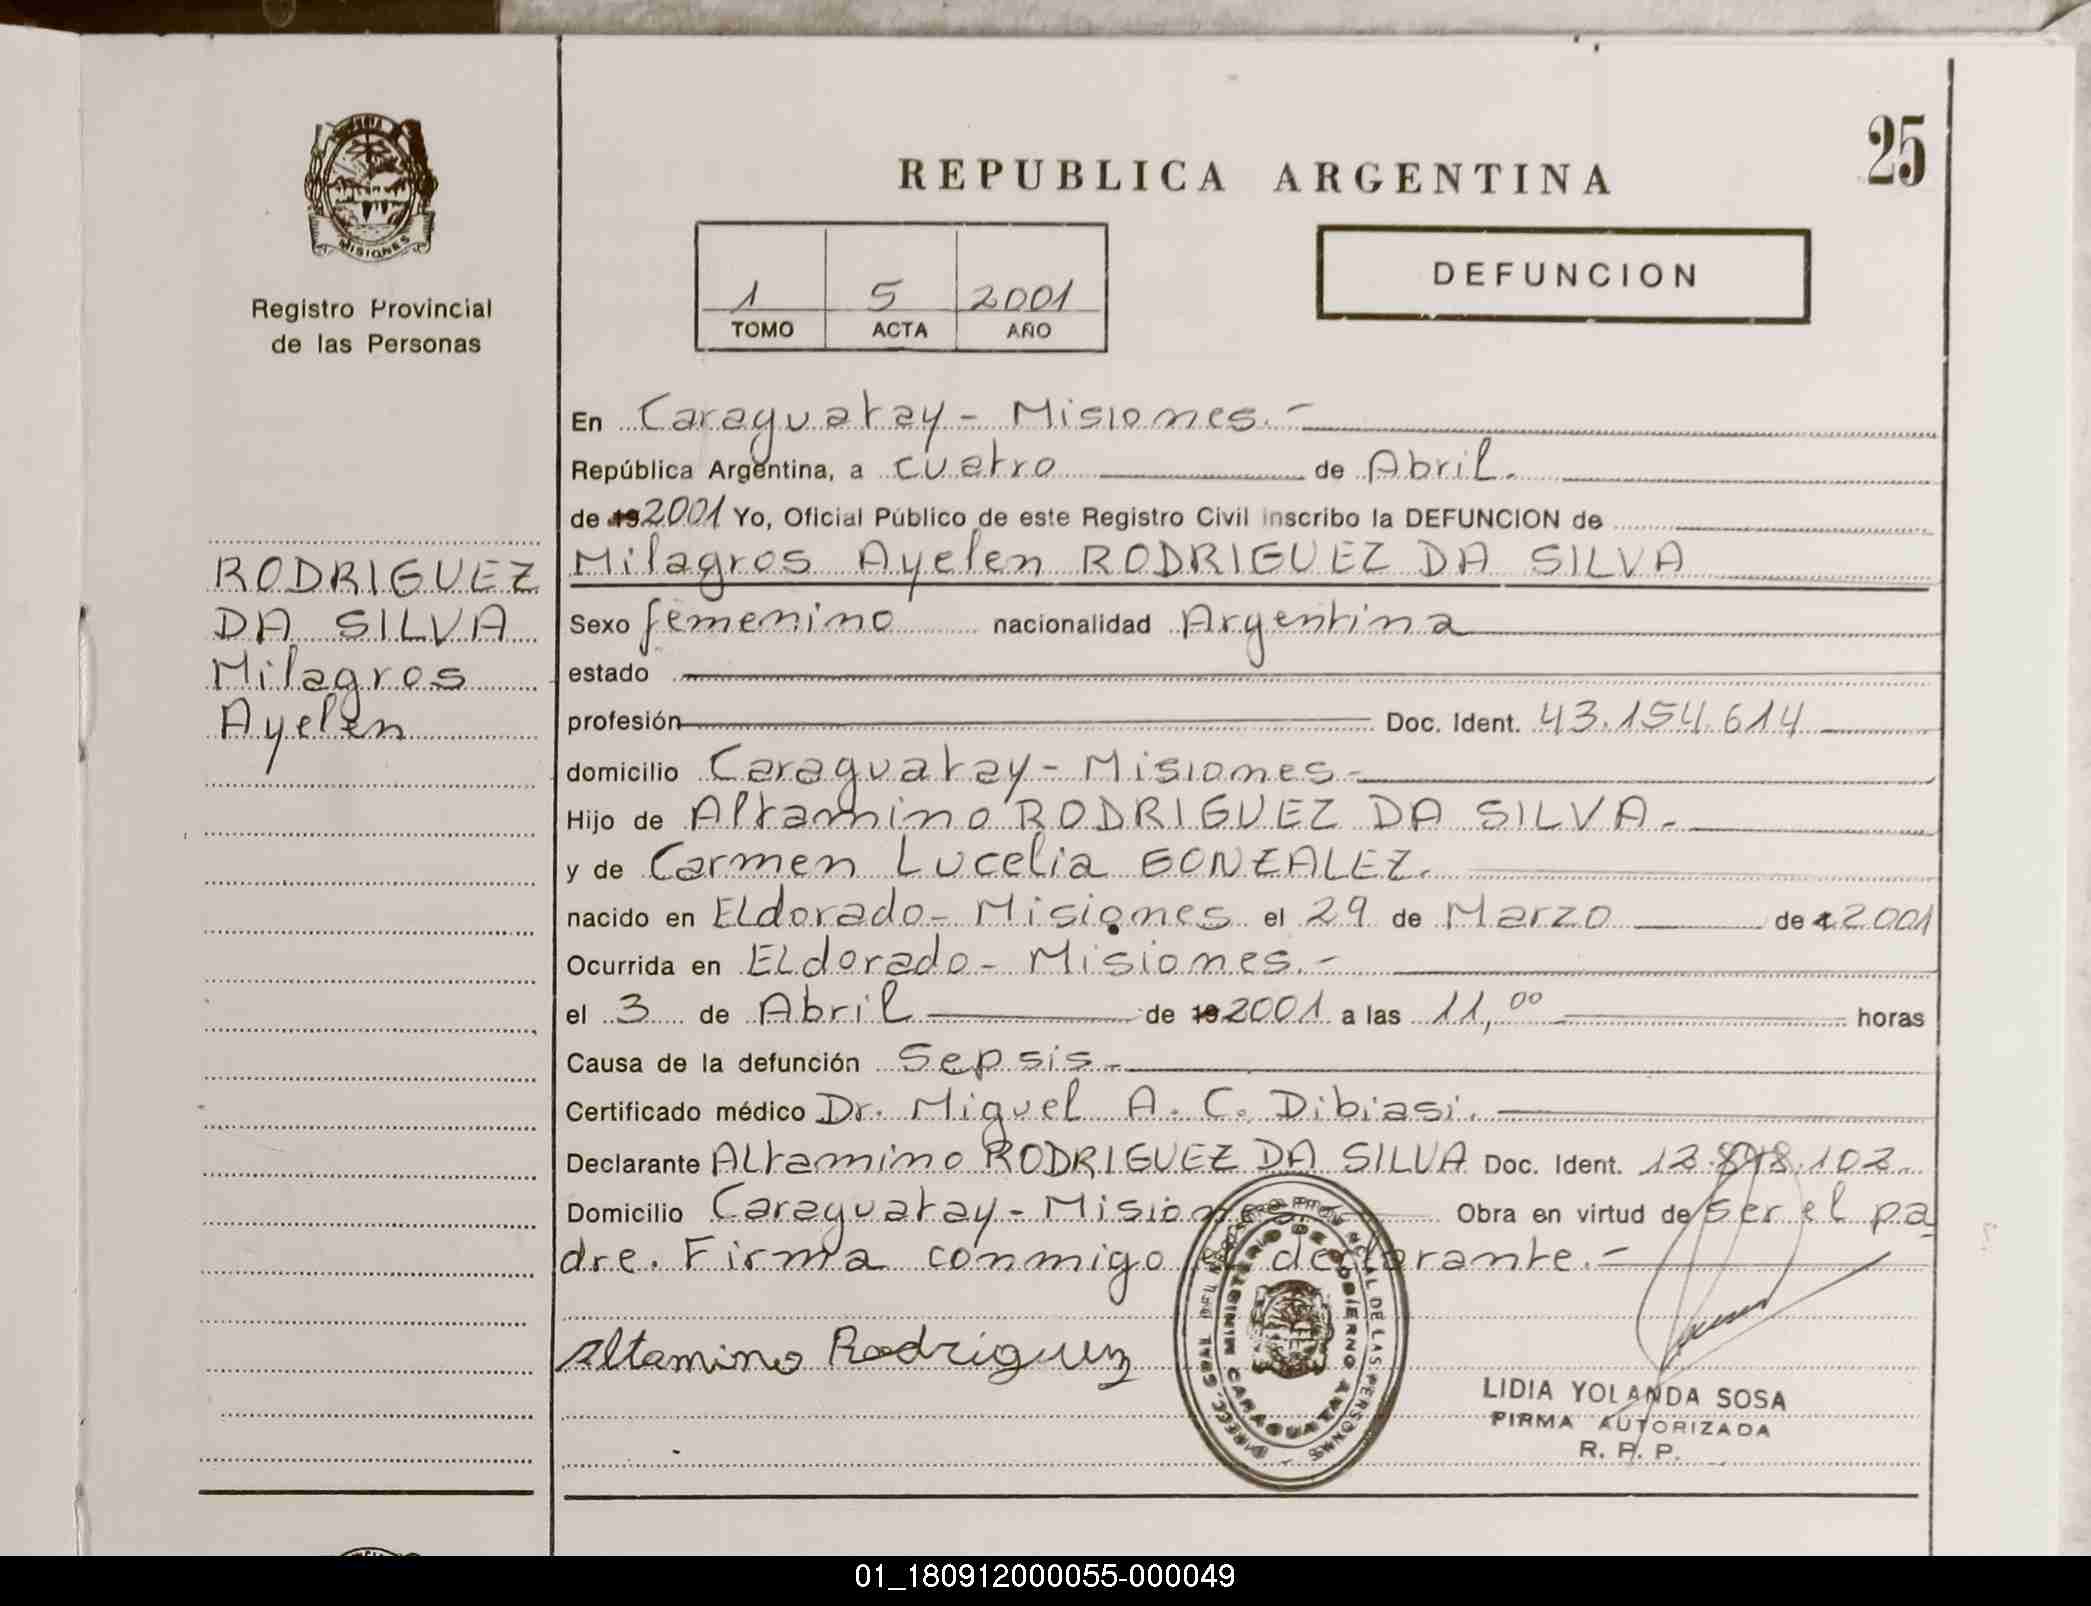 MISIONES
Registro Provincial
de las Personas
RODRIGUEZ
DA SILVA
Milagros
Ayelen
25
REPUBLICA ARGENTINA
1 5 2001
TOMO ACTA AÑO
DEFUNCION
En Caraguatay - Misiones.-
República Argentina, a cuatro de Abril.
de 19 2001 Yo, Oficial Público de este Registro Civil inscribo la DEFUNCION de
Milagros Ayelen RODRIGUEZ DA SILVA
Sexo femenino nacionalidad Argentina
estado
profesión Doc. Ident. 43.154.614
domicilio Caraguatay - Misiones -
Hijo de Altamino RODRIGUEZ DA SILVA.-
y de Carmen Lucelia GONZALEZ.
nacido en ELdorado - Misiones el 29 de Marzo de 1 2001
Ocurrida en ELdorado - Misiones.-
el 3 de Abril de 19 2001 a las 11,00 horas
Causa de la defunción Sepsis.-
Certificado médico Dr. Miguel A. C. Dibiasi.
Declarante ALtamino RODRIGUEZ DA SILVA Doc. Ident.
Domicilio Caraguatay - Misiones Obra en virtud de ser el pa
dre. Firma conmigo el declarante.-
Altamino Rodriguez
MINISTERIO DE GOBIERNO
CARAGUATAY
LIDIA YOLANDA SOSA
FIRMA AUTORIZADA
R. P. P.
01_180912000055-000049